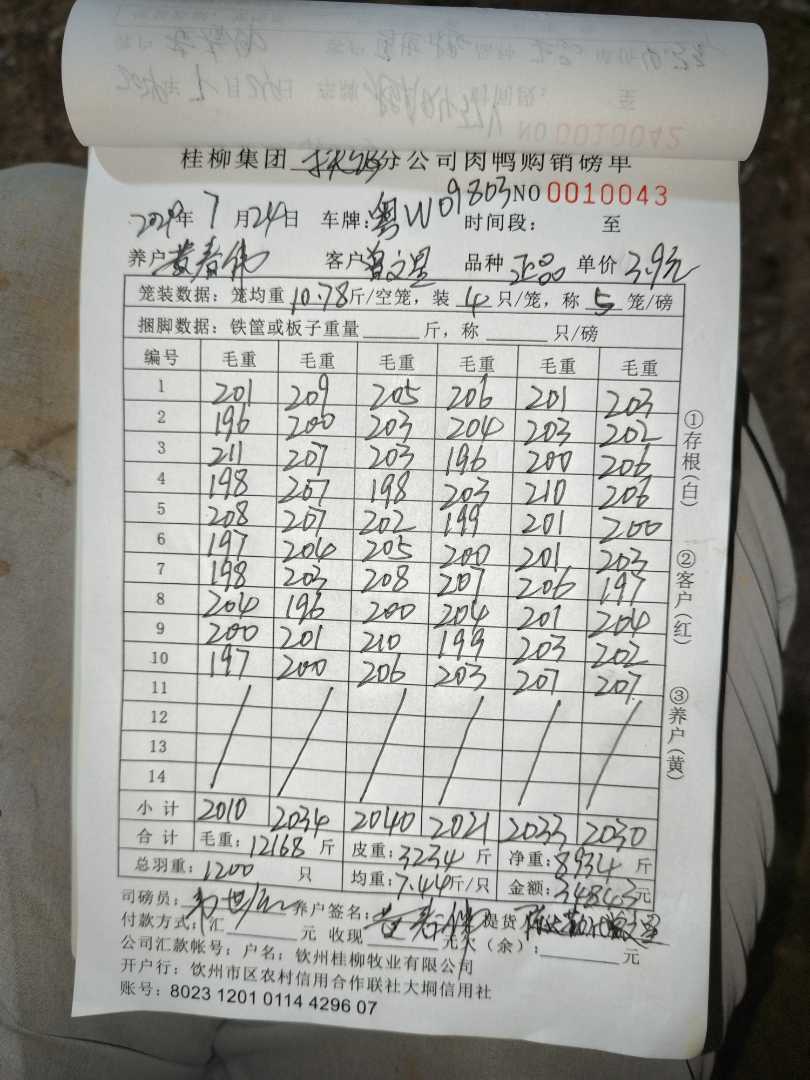 NO 0010042
桂柳集团 分公司肉鸭购销磅单
NO 0010043
2024年 7月24日 车牌:粤W09803 时间段: 至
养户 黄春伟 客户 曾文星 品种 正品 单价 3.9元
笼装数据:笼均重10.78斤/空笼,装4只/笼,称5笼/磅
捆脚数据:铁筐或板子重量______斤,称______只/磅
编号 毛重 毛重 毛重 毛重 毛重 毛重
1 201 209 205 206 201 203
2 196 200 203 204 203 202
3 211 207 203 196 200 206
4 198 207 198 203 210 206
5 208 207 202 199 201 200
6 197 204 205 200 201 203
7 198 203 208 207 206 197
8 204 196 200 204 201 204
9 200 201 210 199 203 202
10 197 200 206 203 207 207
11
12
13
14
小计 2010 2034 2040 2021 2033 2030
合计 毛重:12168斤 皮重:3234斤 净重:8934斤
总羽重:1200只 均重:7.44斤/只 金额:34843元
司磅员: 养户签名:黄春伟 提货
付款方式:汇______元 收现______元欠(余):______元
公司汇款帐号:户名:钦州桂柳牧业有限公司
开户行:钦州市区农村信用合作联社大垌信用社
账号:8023 1201 0114 4296 07
①存根(白)
②客户(红)
③养户(黄)